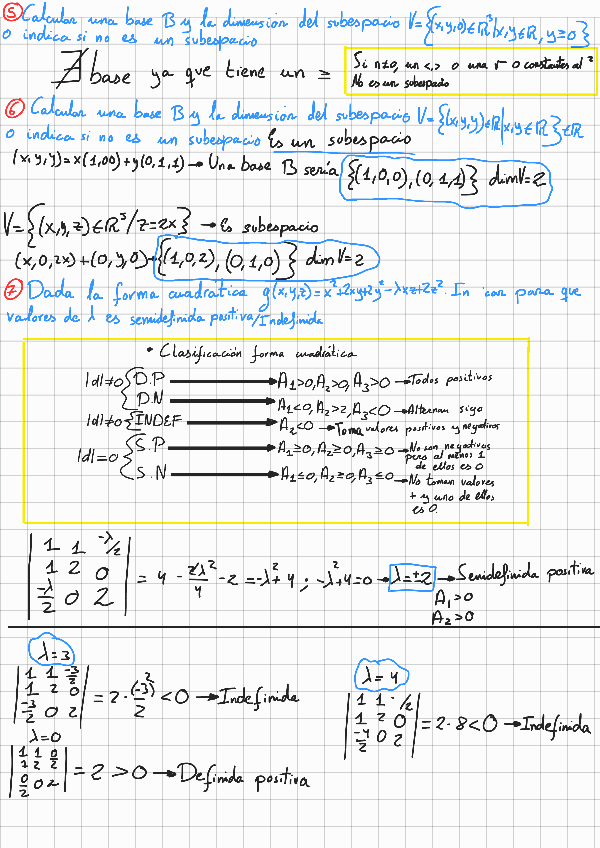 ⑤ Calcular una base B y la dimensión del subespacio V={(x,y,0)∈R³|x,y∈R, y≥0}
o indica si no es un subespacio
∄ base ya que tiene un ≥
Si n≠0, un <,> o una √ o constantes al ²
No es un subespacio
⑥ Calcular una base B y la dimensión del subespacio V={(x,y,y)∈R|x,y∈R}∈R
o indica si no es un subespacio Es un subespacio
(x,y,y)=x(1,00)+y(0,1,1)→Una base B sería {(1,0,0),(0,1,1)} dimV=2
V={(x,y,z)∈R³/z=2x} → Es subespacio
(x,0,2x)+(0,y,0)→{(1,0,2),(0,1,0)} dimV=2
⑦ Dada la forma cuadrática q(x,y,z)=x²+2xy+2y²-λxz+2z². In car para que
valores de λ es semidefinida positiva/Indefinida
• Clasificación forma cuadrática
|d|≠0 { D.P → A₁>0, A₂>0, A₃>0 → Todos positivos
D.N → A₁<0, A₂>2, A₃<0 → Alternan sigo
|d|≠0 { INDEF → A₂<0 → Toma valores positivos y negativos
|d|=0 { S.P → A₁≥0, A₂≥0, A₃≥0 → No son negativos
pero al menos 1
de ellos es 0
S.N → A₁≤0, A₂≥0, A₃≤0 → No toman valores
+ y uno de ellos
es 0.
|1 1 -λ/2|
|1 2 0| = 4 - 2λ²/4 - 2 = -λ²+4 ; -λ²+4=0 → λ=±2 → Semidefinida positiva
|-λ/2 0 2|
A₁>0
A₂>0
λ=3
|1 1 -3/2|
|1 2 0| = 2·(-3)²/2 <0 → Indefinida
|-3/2 0 2|
λ=4
|1 1 -/2|
|1 2 0| = 2-8<0 → Indefinida
|-4/2 0 2|
λ=0
|1 1 0/2|
|1 2 2/2| = 2 >0 → Definida positiva
|0/2 0 2|